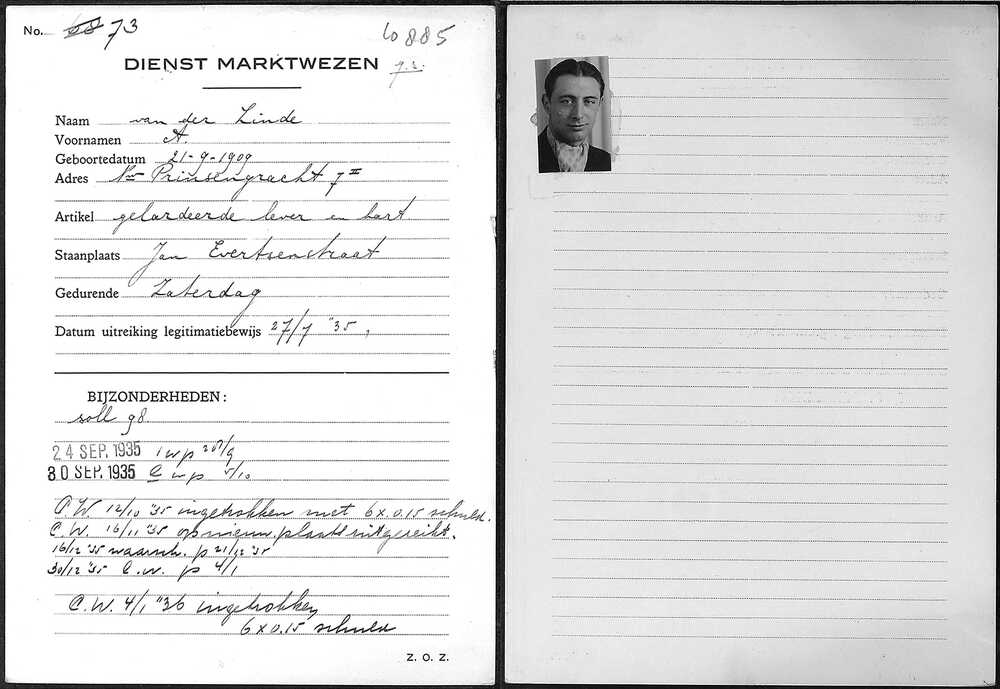 No. 68 73
10885
DIENST MARKTWEZEN
Naam van der Linde
Voornamen A.
Geboortedatum 21-9-1909
Adres Nwe Prinsengracht 7 II
Artikel gelardeerde lever en hart
Staanplaats Jan Evertsenstraat
Gedurende Zaterdag
Datum uitreiking legitimatiebewijs 27/7 '35,
BIJZONDERHEDEN:
soll 98
24 SEP. 1935 1 w p 27/9
30 SEP. 1935 w p 5/10
C.W. 12/10 '35 ingetrokken met 6 x 0.15 schuld.
C.W. 16/11 '35 opnieuw plaats uitgereikt.
16/12 '35 waarsch. p 21/12 '35
30/12 '35 C.w. p 4/1
C.W. 4/1 '36 ingetrokken
6 x 0.15 schuld
Z. O. Z.